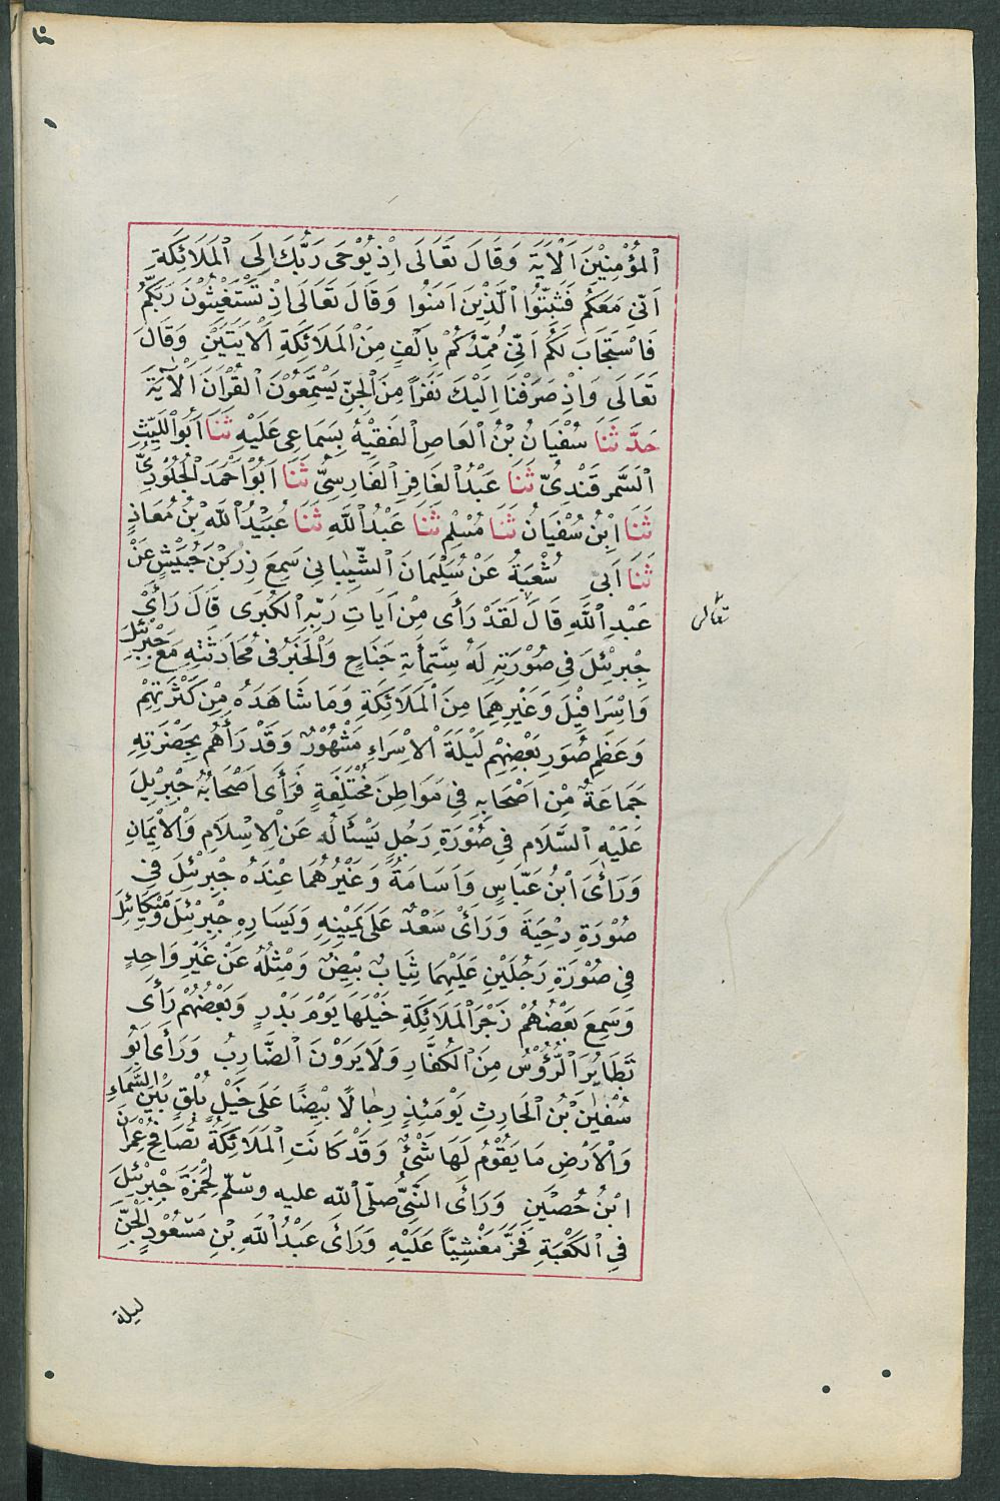 اَلْمُؤْمِنِيْنَ اَلْاٰيَةَ وَقَالَ تَعَالَى اِذْ يُوْحَى رَبُّكَ اِلَى الْمَلَائِكَةِ
اَنِّى مَعَكُمْ فَثَبِّتُوا الَّذِيْنَ اٰمَنُوا وَقَالَ تَعَالَى اِذْ تَسْتَغِيْثُوْنَ رَبَّكُمْ
فَاسْتَجَابَ لَكُمْ اَنِّى مُمِدُّكُمْ بِاَلْفٍ مِنَ الْمَلَائِكَةِ اَلْاٰيَتَيْنِ وَقَالَ
تَعَالَى وَاِذْ صَرَفْنَا اِلَيْكَ نَفَراً مِنَ الْجِنِّ يَسْتَمِعُوْنَ الْقُرْاٰنَ اَلْاٰيَةَ
حَدَّثَنَا سُفْيَانُ بْنُ الْعَاصِ الْفَقِيْهُ بِسَمَاعِى عَلَيْهِ ثَنَا اَبُو اللَّيْثِ
اَلسَّمَرقَنْدِىُّ ثَنَا عَبْدُ الْغَافِرِ الْفَارِسِىُّ ثَنَا اَبُوْ اَحْمَدَ الْجُلُوْدِىُّ
ثَنَا ابْنُ سُفْيَانُ ثَنَا مُسْلِم ثَنَا عَبْدُ اللّٰهِ ثَنَا عُبَيْدُ اللّٰهِ بْنُ مُعَاذٍ
ثَنَا اَبى شُعْبَةُ عَنْ سُلَيْمَانَ الشَّيْبَانِى سَمِعَ زِرَّ بْنَ حُبَيْشٍ عَنْ
عَبْدِ اللّٰهِ قَالَ لَقَدْ رَأَى مِنْ اٰيَاتِ رَبِّهِ الْكُبْرَى قَالَ رَأَىْ
تعالى
جِبْرِئِلَ فِى صُوْرَتِهِ لَهُ سِتُّمِأَةِ جَنَاحٍ وَالْخَبَرُ فى مُحَادَثَتِهِ مَعَ جِبْرِئِلَ
وَاِسْرَافِيْلَ وَغَيْرِهِمَا مِنَ الْمَلَائِكَةِ وَمَا شَاهَدَهُ مِنْ كَثْرَتِهِمْ
وَعَظَمِ صُوَرِ بَعْضِهِمْ لَيْلَةَ الْاِسْرَاءِ مَشْهُوْرٌ وَقَدْ رَأٰهُمْ بِحَضْرَتِهِ
جَمَاعَةٌ مِنْ اَصْحَابِهِ فِى مَوَاطِنَ مُخْتَلِفَةٍ فَرَأَى اَصْحَابُهُ جِبْرِيْلَ
عَلَيْهِ السَّلَام فِى صُوْرَةِ رَجُلٍ يَسْئَالُه عَنِ الْاِسْلَامِ وَالْاِيْمَانِ
وَرَأَىَ ابْنُ عَبَّاسٍ وَاُسَامَةُ وَغَيْرُهُمَا عِنْدَهُ جِبْرِئِلَ فِى
صُوْرَةِ دِحْيَةَ وَرَأَىْ سَعْدٌ عَلَى يَمِيْنِهِ وَيَسَارِهِ جِبْرِئِلَ وَمِيْكَائِلَ
فِى صُوْرَةِ رَجُلَيْنِ عَلَيْهِمَا ثِيَابٌ بِيْضٌ وَمِثْلُهُ عَنْ غَيْرِ وَاحِدٍ
وَسَمِعَ بَعْضُهُمْ زَجْرَ الْمَلَائِكَةِ خَيْلَهَا يَوْمَ بَدْرٍ وَبَعْضُهُمْ رَأَى
تَطَايُرَ الرُّؤُسِ مِنَ الْكُفَّارِ وَلَا يَرَوْنَ الضَّارِبُ وَرَأَى اَبُو
سُفْيٰنَ بْنُ الْحَارِثِ يَوْمَئِذٍ رِجَالًا بِيْضًا عَلَى خَيْلٍ بُلْقٍ بَيْنَ السَّمَاءِ
وَالْاَرْضِ مَا يَقُوْمُ لَهَا شَىْءٌ وَقَدْ كَانَتِ الْمَلَائِكَةُ تُصَافِحُ عِمْرَانَ
ابْنُ حُصَيْنٍ وَرَأَى النَّبِىُّ صلّى اللّٰه عليه وسلّم لِحَمْزَةَ جِبْرِئِلَ
فِى الْكَعْبَةِ فَخَرَّ مَغْشِيًّا عَلَيْهِ وَرَأَىَ عَبْدُ اللّٰهِ بْنِ مَسْعُوْدٍ الْجِنَّ
ليلة